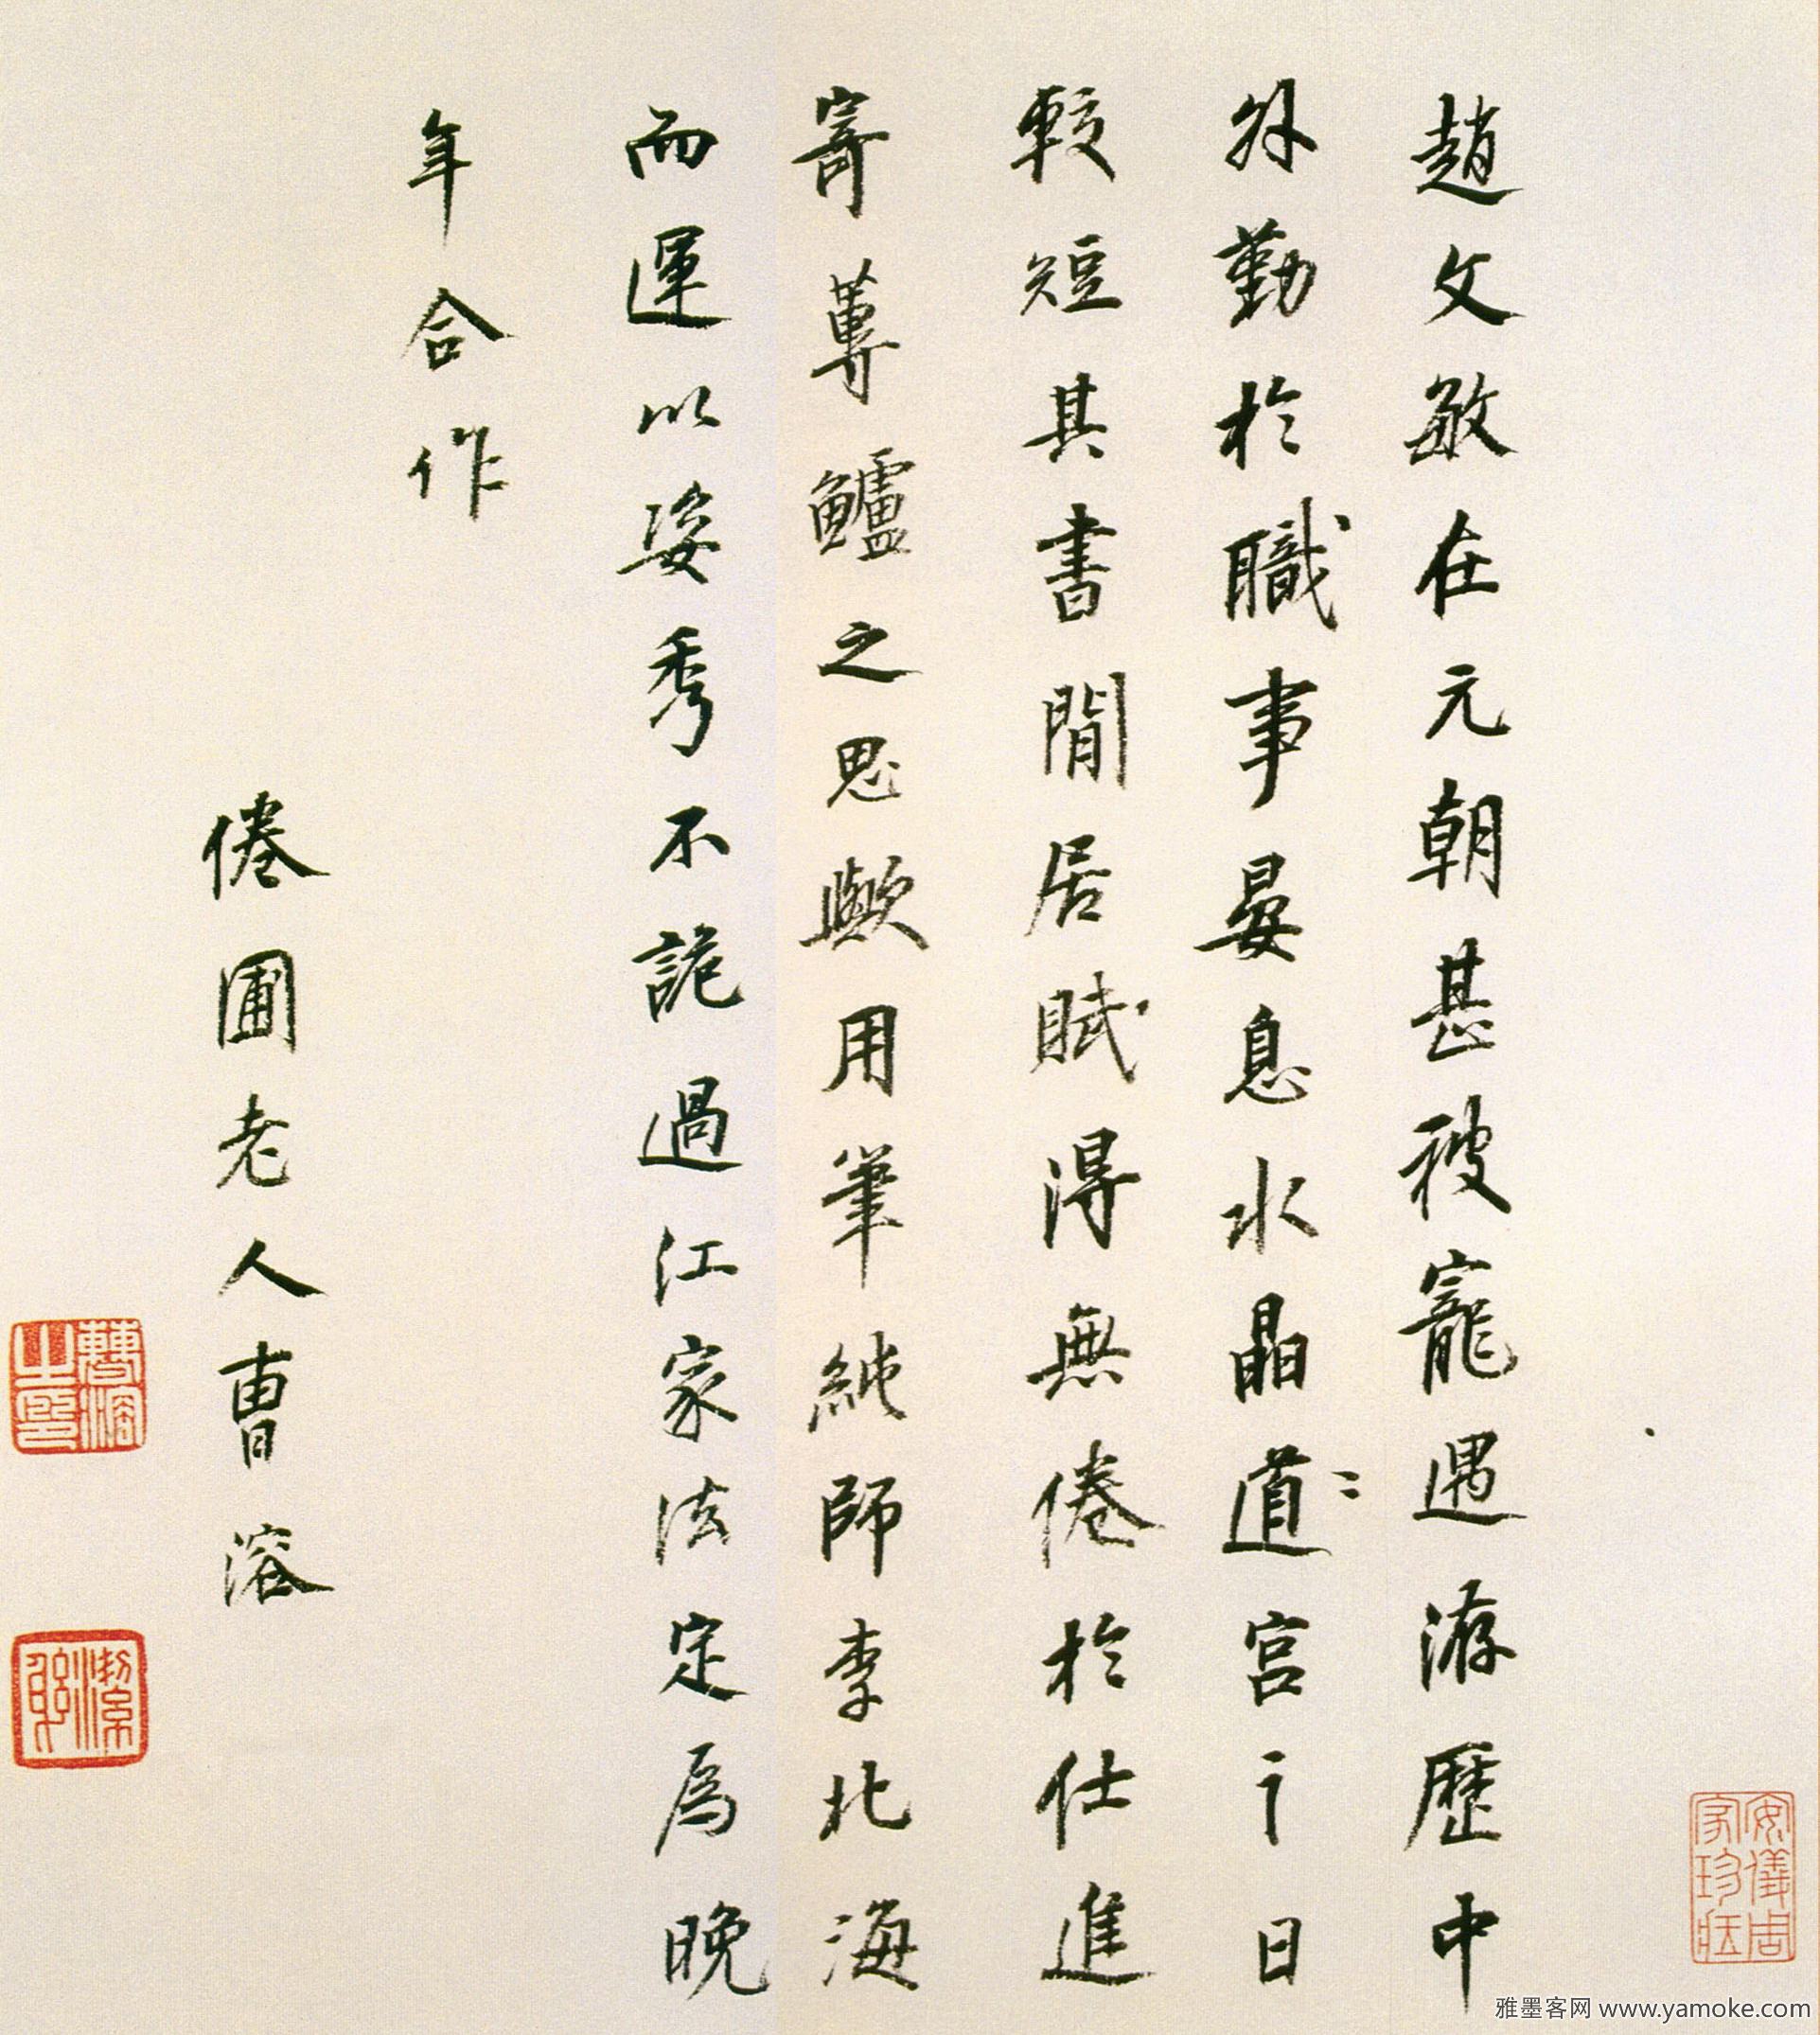 趙文敏在元朝甚被寵遇游歷中
外勤於職事晏息水晶道宮之日
較短其書閒居賦得無倦於仕進
寄蓴鱸之思歟用筆純師李北海
而運以姿秀不詭過江家法定為晚
年合作
倦圃老人曹溶
曹溶之印
安儀周家珍藏
雅墨客网 www.yamoke.com